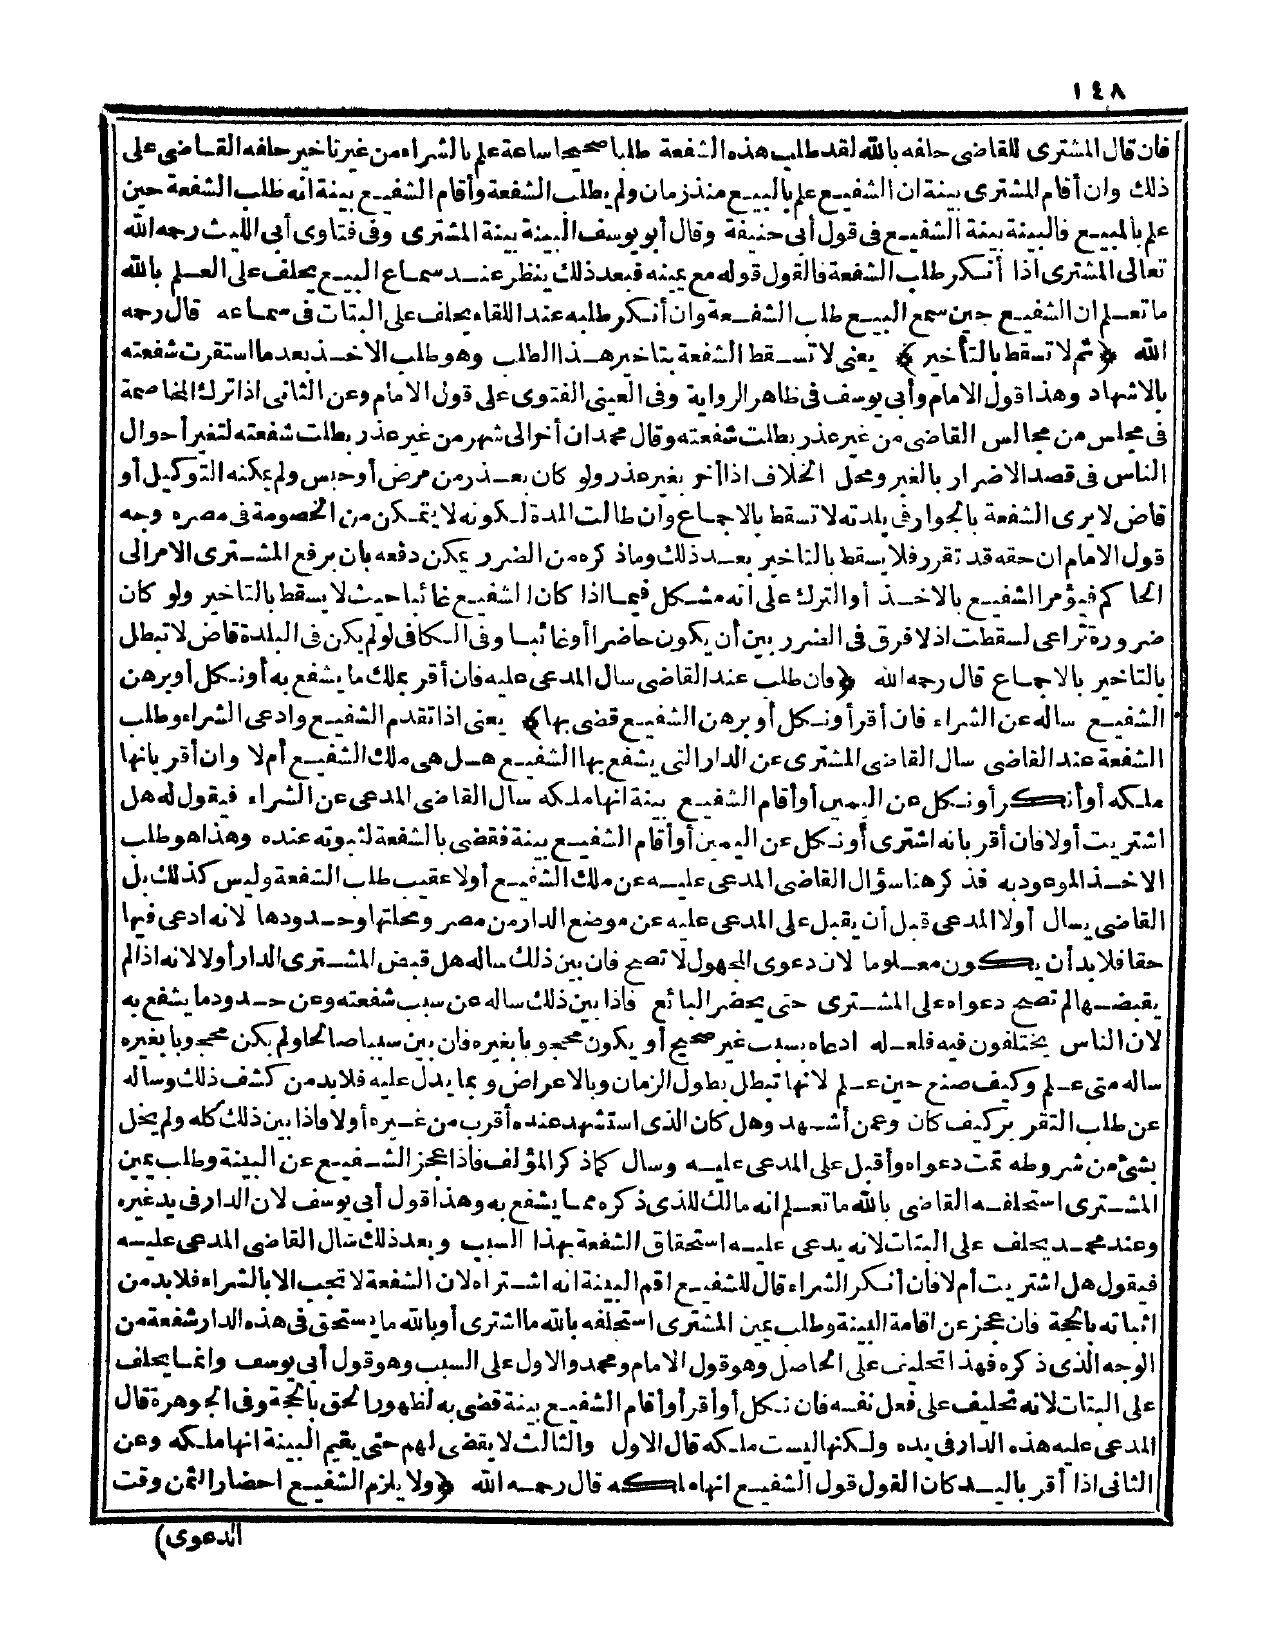 ١٤٨
فان قال المشترى للقاضى حلفه بالله لقد طلب هذه الشفعة طلبا صحيحا ساعة علم بالشراء من غير تاخير حلفه القاضى على
ذلك وان أقام المشترى بينة ان الشفيع علم بالبيع منذ زمان ولم يطلب الشفعة وأقام الشفيع بينة انه طلب الشفعة حين
علم بالمبيع فالبينة بينة الشفيع فى قول أبى حنيفة وقال أبو يوسف البينة بينة المشترى وفى فتاوى أبى الليث رحمه الله
تعالى المشترى اذا أنكر طلب الشفعة فالقول قوله مع يمينه فبعد ذلك ينظر عند سماع البيع يحلف على العلم بالله
ما تعلم ان الشفيع حين سمع البيع طلب الشفعة وان أنكر طلبه عند اللقاء يحلف على البتات فى سماعه قال رحمه
الله ﴿ثم لا تسقط بالتأخير﴾ يعنى لا تسقط الشفعة بتاخير هذا الطلب وهو طلب الاخذ بعد ما استقرت شفعته
بالاشهاد وهذا قول الامام وأبى يوسف فى ظاهر الرواية وفى العينى الفتوى على قول الامام وعن الثانى اذا ترك المخاصمة
فى مجلس من مجالس القاضى من غير عذر بطلت شفعته وقال محمد ان أخر الى شهر من غير عذر بطلت شفعته لتغير أحوال
الناس فى قصد الاضرار بالغير ومحل الخلاف اذا أخر بغير عذر ولو كان بعذر من مرض أو حبس ولم يمكنه التوكيل أو
قاض لا يرى الشفعة بالجوار فى بلدته لا تسقط بالاجماع وان طالت المدة لكونه لا يتمكن من الخصومة فى مصره وجه
قول الامام ان حقه قد تقرر فلا يسقط بالتاخير بعد ذلك وما ذكره من الضرر يمكن دفعه بان يرفع المشترى الامر الى
الحاكم فيؤمر الشفيع بالاخذ أو الترك على انه مشكل فيما اذا كان الشفيع غائبا حيث لا يسقط بالتاخير ولو كان
ضرورة تراعى لسقطت اذ لا فرق فى الضرر بين أن يكون حاضرا أو غائبا وفى الكافى لو لم يكن فى البلدة قاض لا تبطل
بالتاخير بالاجماع قال رحمه الله ﴿وان طلب عند القاضى سال المدعى عليه فان أقر بملك ما يشفع به أو نكل أو برهن
الشفيع ساله عن الشراء فان أقر أو نكل أو برهن الشفيع قضى بها﴾ يعنى اذا تقدم الشفيع وادعى الشراء وطلب
الشفعة عند القاضى سال القاضى المشترى عن الدار التى يشفع بها الشفيع هل هى ملك الشفيع أم لا وان أقر بانها
ملكه أو أنكر أو نكل عن اليمين أو أقام الشفيع بينة انها ملكه سال القاضى المدعى عن الشراء فيقول له هل
اشتريت أو لا فان أقر بانه اشترى أو نكل عن اليمين أو أقام الشفيع بينة فقضى بالشفعة لثبوته عنده وهذا هو طلب
الاخذ الموعود به فذكر هنا سؤال القاضى المدعى عليه عن ملك الشفيع أولا عقيب طلب الشفعة وليس كذلك بل
القاضى يسال أولا المدعى قبل أن يقبل على المدعى عليه عن موضع الدار من مصر ومحلتها وحدودها لانه ادعى فيها
حقا فلا بد أن يكون معلوما لان دعوى المجهول لا تصح فان بين ذلك ساله هل قبض المشترى الدار أو لا لانه اذا لم
يقبضها لم تصح دعواه على المشترى حتى يحضر البائع فاذا بين ذلك ساله عن سبب شفعته وعن حدود ما يشفع به
لان الناس يختلفون فيه فلعله ادعاه بسبب غير صحيح أو يكون محجوبا بغيره فان بين سببا صالحا ولم يكن محجوبا بغيره
ساله متى علم وكيف صنع حين علم لانها تبطل بطول الزمان وبالاعراض وبما يدل عليه فلا بد من كشف ذلك وساله
عن طلب التقرير كيف كان وعمن أشهد وهل كان الذى استشهد عنده أقرب من غيره أو لا فاذا بين ذلك كله ولم يخل
بشئ من شروطه تمت دعواه وأقبل على المدعى عليه وسال كما ذكر المؤلف فاذا عجز الشفيع عن البينة وطلب يمين
المشترى استحلفه القاضى بالله ما تعلم انه مالك للذى ذكره مما يشفع به وهذا قول أبى يوسف لان الدار فى يد غيره
وعند محمد يحلف على البتات لانه يدعى عليه استحقاق الشفعة بهذا السبب وبعد ذلك سال القاضى المدعى عليه
فيقول هل اشتريت أم لا فان أنكر الشراء قال للشفيع اقم البينة انه اشتراه لان الشفعة لا تجب الا بالشراء فلا بد من
اثباته بالحجة فان عجز عن اقامة البينة وطلب يمين المشترى استحلفه بالله ما اشترى أو بالله ما يستحق فى هذه الدار شفعة من
الوجه الذى ذكره فهذا تحليف على الحاصل وهو قول الامام ومحمد والاول على السبب وهو قول أبى يوسف وانما يحلف
على البتات لانه تحليف على فعل نفسه فان نكل أو أقر أو أقام الشفيع بينة قضى به لظهور الحق بالحجة وفى الجوهرة قال
المدعى عليه هذه الدار فى يده ولكنها ليست ملكه قال الاول والثالث لا يقضى لهم حتى يقيم البينة انها ملكه وعن
الثانى اذا أقر باليد كان القول قول الشفيع انها ملكه قال رحمه الله ﴿ولا يلزم الشفيع احضار الثمن وقت
الدعوى﴾